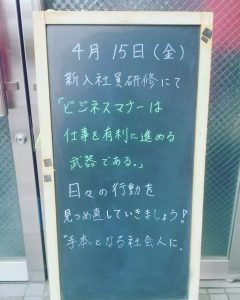 4月15日(金)
新入社員研修にて
「ビジネスマナーは
仕事を有利に進める
武器である。」
日々の行動を
見つめ直していきましょう!
"手本となる社会人に。